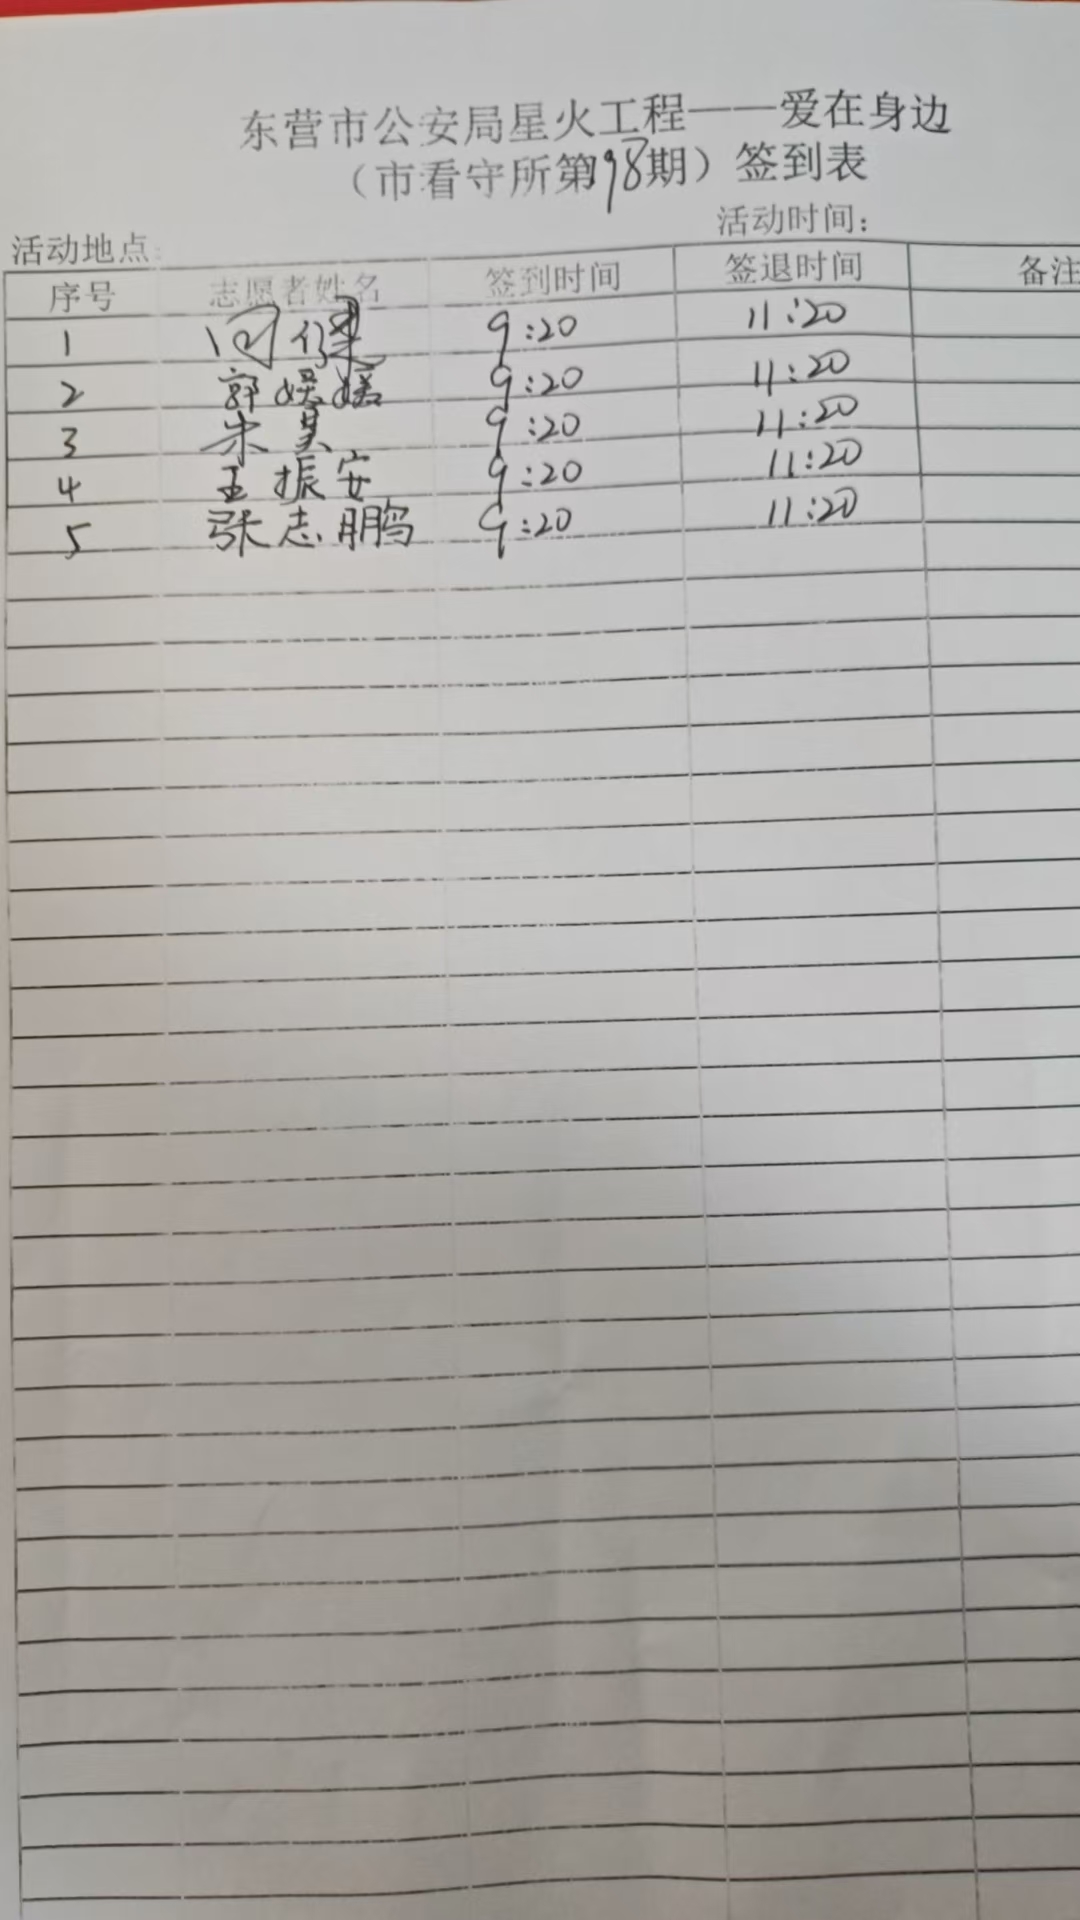 东营市公安局星火工程——爱在身边
（市看守所第98期）签到表
活动地点： 活动时间：
序号 志愿者姓名 签到时间 签退时间 备注
1 9:20 11:20
2 郭媛媛 9:20 11:20
3 朱昊 9:20 11:20
4 王振安 9:20 11:20
5 张志鹏 9:20 11:20